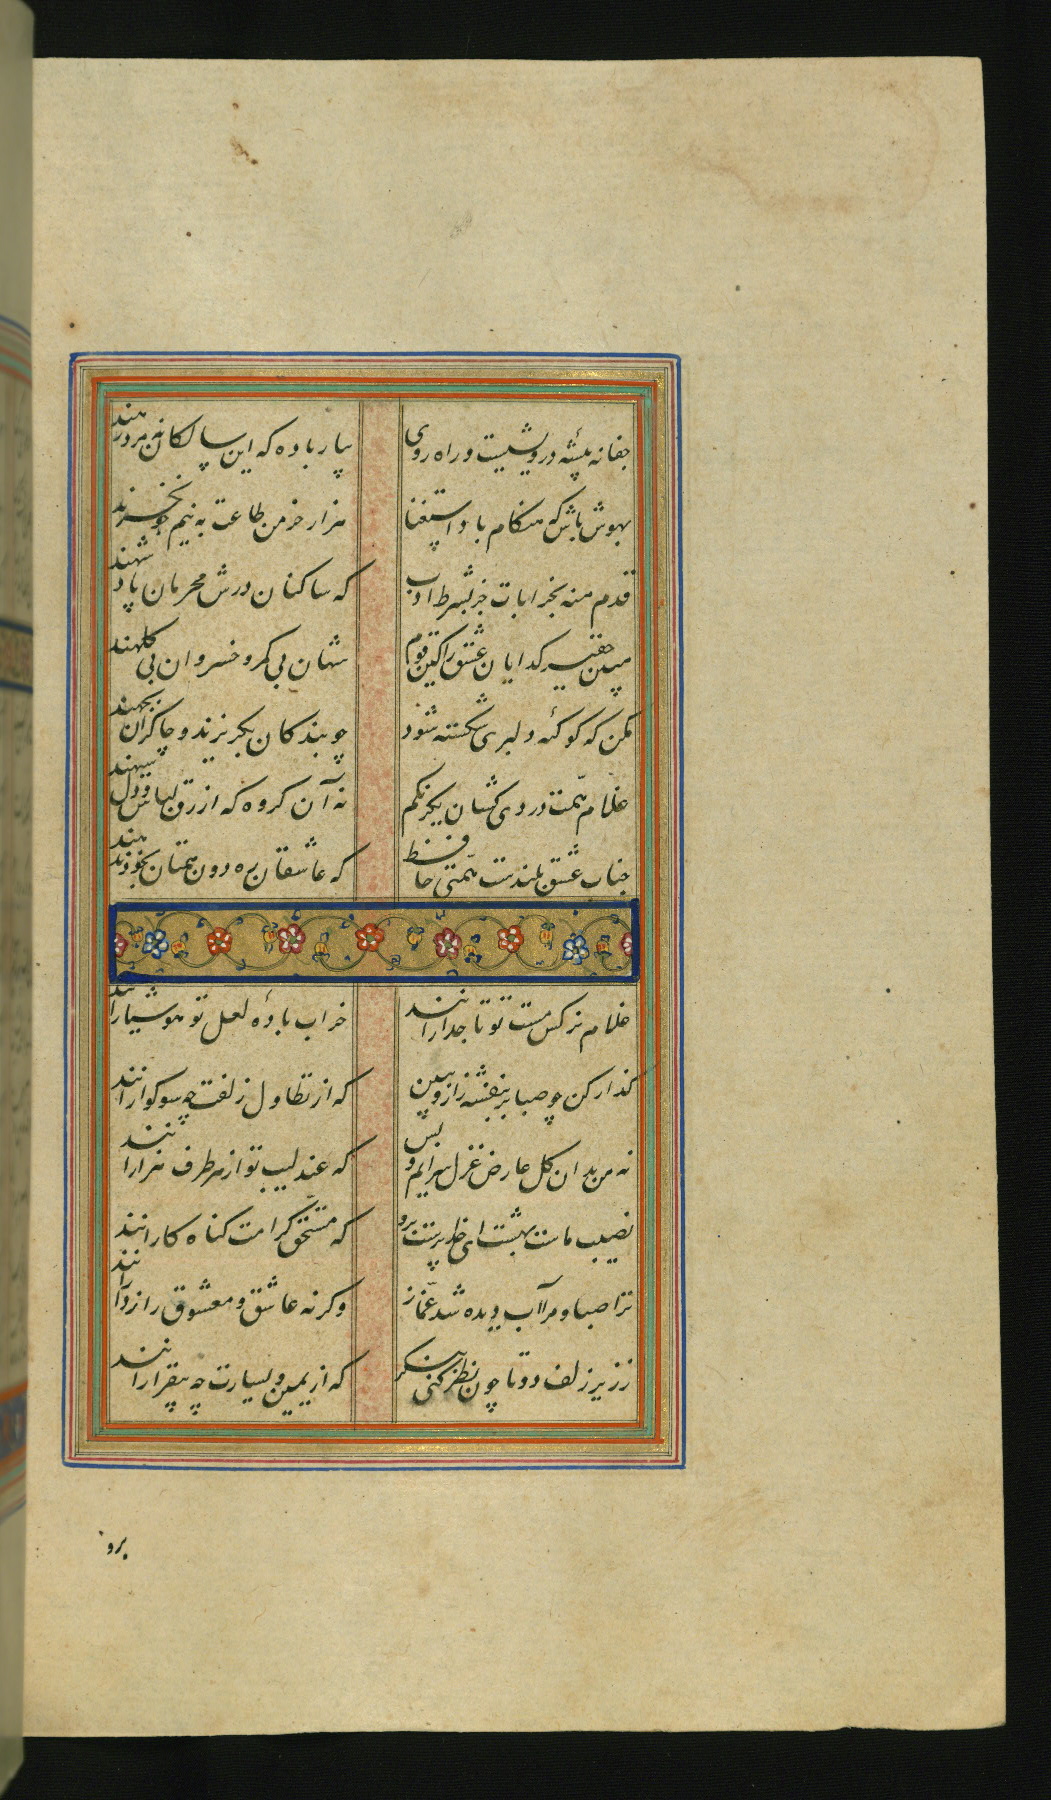 جفا نه پیشهٔ درویشیست و راه روی
بیار باده که این سالکان نه مرد رهند
بهوش باش که هنکام باد استغنا
هزار خرمن طاعت به نیم جو نخرند
قدم منه بخرابات جز بشرط ادب
که ساکنان درش محرمان پادشهند
مبین حقیر کدایان عشق را کین قوم
شهان بی کمر و خسروان بی کلهند
مکن که کوکبهٔ دلبری شکسته شود
چو بندکان بکریزند و چاکران بجهند
غلام همت دردی کشان یکرنکم
نه آن کروه که ازرق لباس و دل سیهند
جناب عشق بلندست همتی حافظ
که عاشقان ره دون همتان بخود ندهند
غلام نرکس مست تو تاجدارانند
خراب بادهٔ لعل تو هوشیارانند
کذار کن چو صبا بر بنفشه زار و ببین
که از تطاول زلفت چه سوکوارانند
نه من بدان کل عارض غزل سرایم و بس
که عندلیب تو از هر طرف هزارانند
نصیب ماست بهشت ای خداپرست برو
که مستحق کرامت کناه کارانند
ترا صبا و مرا آب دیده شد غماز
وکرنه عاشق و معشوق رازدارانند
ز زیر زلف دوتا چون نظر کنی بنکر
که از یمین و یسارت چه بیقرارانند
برو